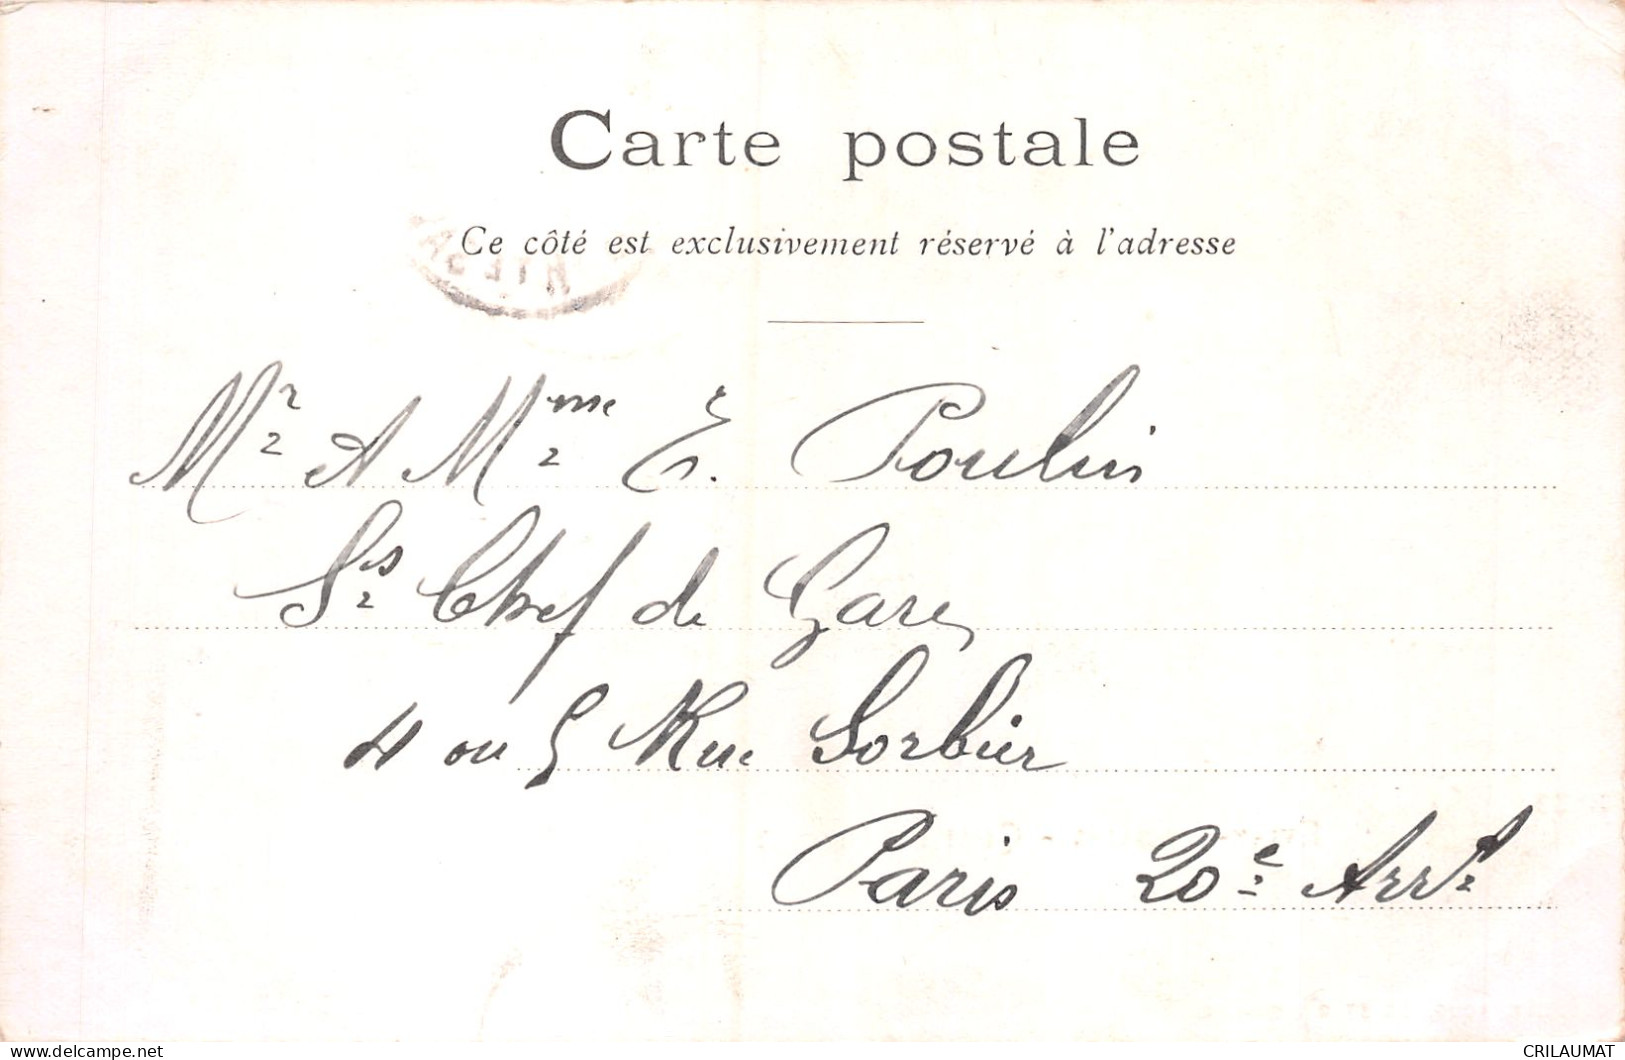 Carte postale
Ce côté est exclusivement réservé à l'adresse
Mr A Mme E. Poulin
Ss Chef de Gare
4 ou 5 Rue Sorbier
Paris 20e Arrt
CRILAUMAT